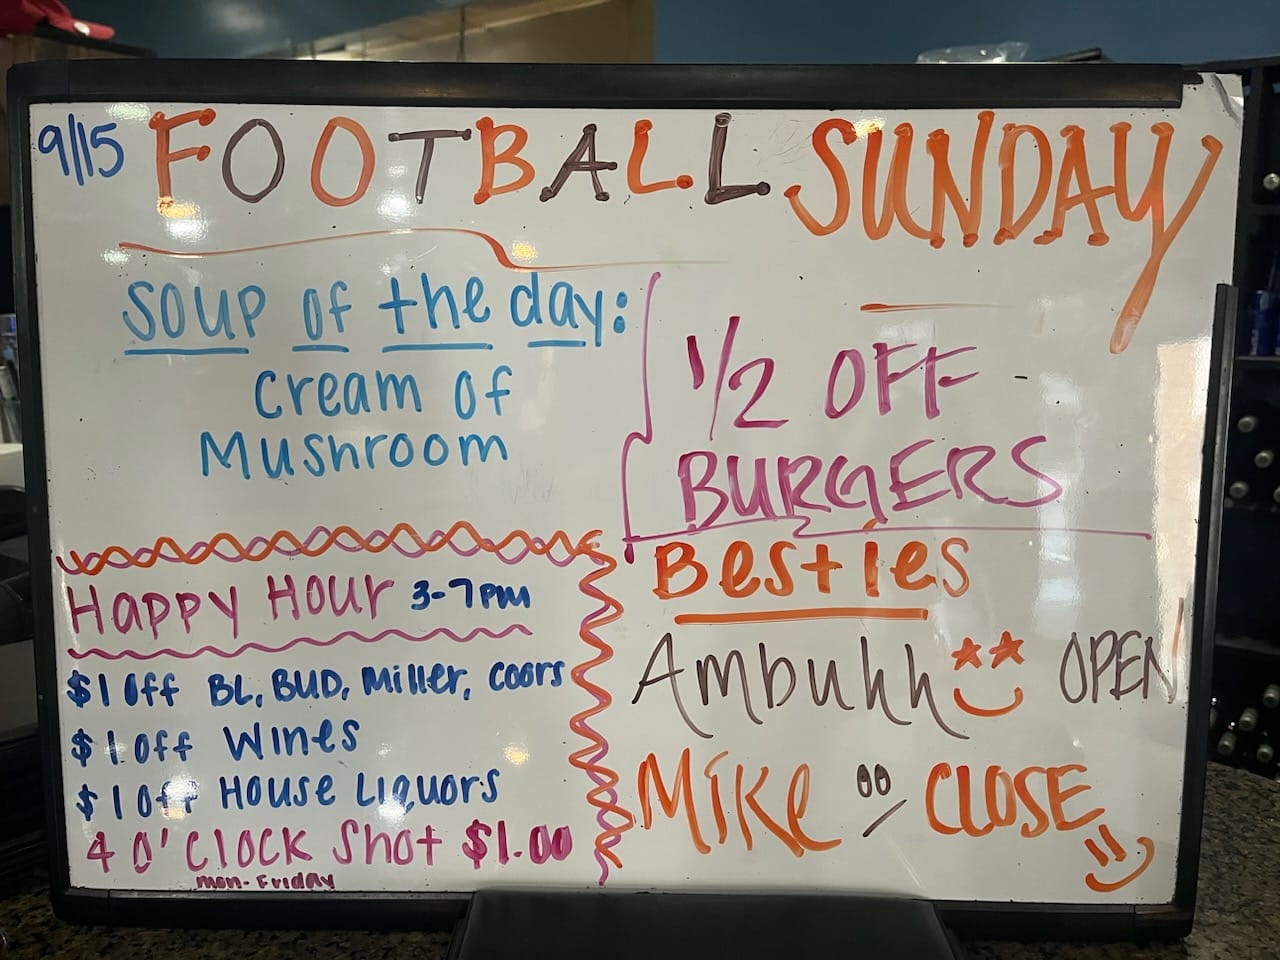 9/15 FOOTBALL SUNDAY
Soup of the day:
Cream of
Mushroom
1/2 OFF
BURGERS
Happy Hour 3-7pm
$1 Off BL, BUD, Miller, Coors
$1 Off Wines
$1 Off House Liquors
4 O'Clock Shot $1.00
mon-Friday
Besties
Ambuhh OPEN
Mike CLOSE